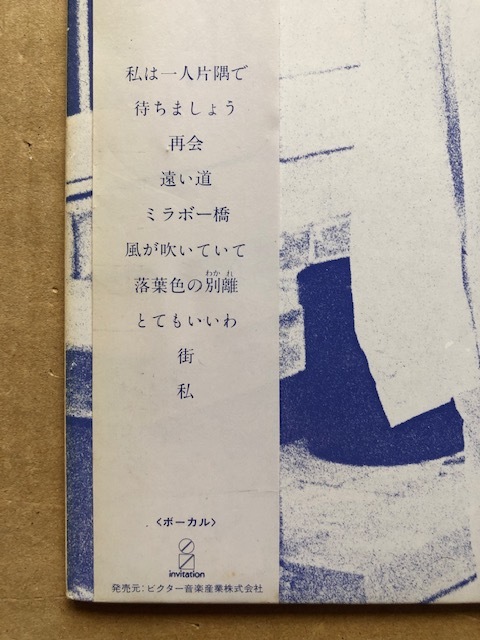 私は一人片隅で
待ちましょう
再会
遠い道
ミラボー橋
風が吹いていて
落葉色の別離
わかれ
とてもいいわ
街
私
〈ボーカル〉
invitation
発売元:ビクター音楽産業株式会社